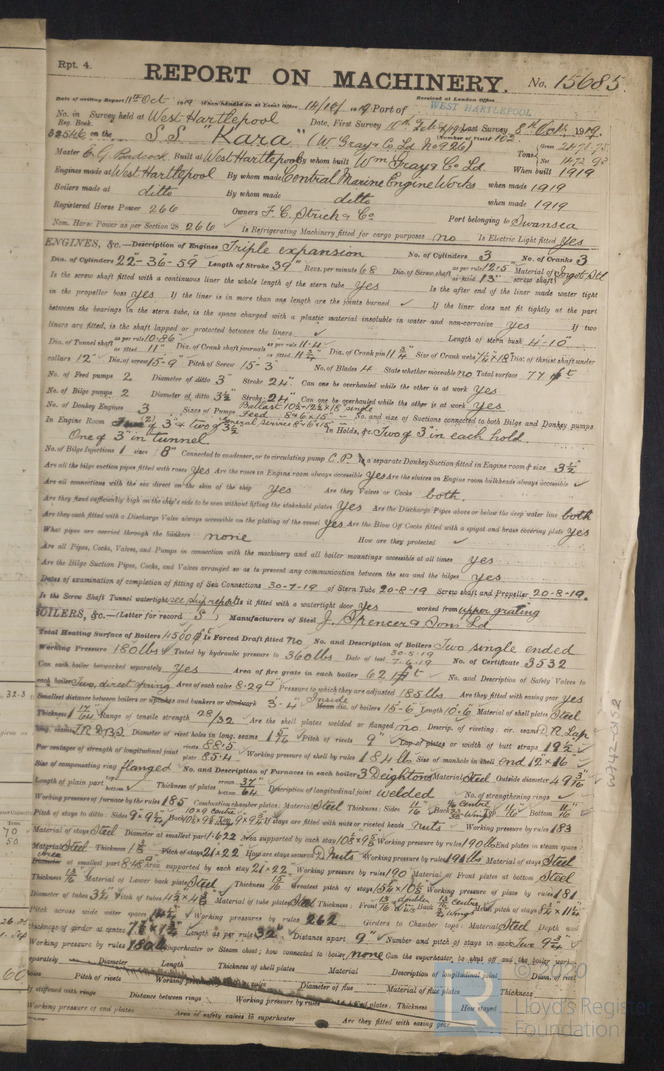 Rpt. 4.
REPORT ON MACHINERY. No. 15685.
Date of writing Report 11th Oct 1919 When handed in at Local Office 14/10/1919 Port of WEST HARTLEPOOL
Received at London Office
No. in Reg. Book. Survey held at West Hartlepool Date, First Survey Last Survey 8th Oct. 1919.
on the S.S "Kara" (W Gray & Co. Ld No 926) (Number of Visits 102
Master Built at West Hartlepool By whom built Wm Gray & Co. Ld. When built 1919
Tons Gross Net
Engines made at West Hartlepool By whom made Central Marine Engine Works when made 1919
Boilers made at ditto By whom made ditto when made 1919
Registered Horse Power 266 Owners F. C. Strick & Co Port belonging to Swansea
Nom. Horse Power as per Section 28 266 Is Refrigerating Machinery fitted for cargo purposes no Is Electric Light fitted yes
ENGINES, &c.—Description of Engines Triple expansion No. of Cylinders 3 No. of Cranks 3
Dia. of Cylinders 22"-36"-59" Length of Stroke 39" Revs. per minute 68 Dia. of Screw shaft as per rule 12.5" as fitted 13" Material of screw shaft Ingot Stl
Is the screw shaft fitted with a continuous liner the whole length of the stern tube Yes Is the after end of the liner made water tight
in the propeller boss yes If the liner is in more than one length are the joints burned ✓ If the liner does not fit tightly at the part
between the bearings in the stern tube, is the space charged with a plastic material insoluble in water and non-corrosive yes If two
liners are fitted, is the shaft lapped or protected between the liners ✓ Length of stern bush 4'-10"
Dia. of Tunnel shaft as per rule 10.86" as fitted 11" Dia. of Crank shaft journals as per rule 11.4" as fitted 11¾" Dia. of Crank pin 11¾" Size of Crank webs Dia. of thrust shaft under
collars 12" Dia. of screw 15'-9" Pitch of Screw 15'-3" No. of Blades 4 State whether moveable no Total surface 77 ft
No. of Feed pumps 2 Diameter of ditto 3" Stroke 24" Can one be overhauled while the other is at work yes
No. of Bilge pumps 2 Diameter of ditto 3½" Stroke 24" Can one be overhauled while the other is at work yes
No. of Donkey Engines 3 Sizes of Pumps Ballast Feed 8"x6"x15" No. and size of Suctions connected to both Bilge and Donkey pumps
In Engine Room of 3" & two of 3½" In Holds, &c. Two of 3" in each hold.
One of 3" in tunnel
No. of Bilge Injections 1 sizes 8" Connected to condenser, or to circulating pump C.P. Is a separate Donkey Suction fitted in Engine room & size 3½"
Are all the bilge suction pipes fitted with roses Yes Are the roses in Engine room always accessible Yes Are the sluices on Engine room bulkheads always accessible ✓
Are all connections with the sea direct on the skin of the ship Yes Are they Valves or Cocks both.
Are they fixed sufficiently high on the ship's side to be seen without lifting the stokehold plates Yes Are the Discharge Pipes above or below the deep water line both
Are they each fitted with a Discharge Valve always accessible on the plating of the vessel Yes Are the Blow Off Cocks fitted with a spigot and brass covering plate Yes
What pipes are carried through the bunkers none How are they protected ✓
Are all Pipes, Cocks, Valves, and Pumps in connection with the machinery and all boiler mountings accessible at all times yes
Are the Bilge Suction Pipes, Cocks, and Valves arranged so as to prevent any communication between the sea and the bilges yes
Dates of examination of completion of fitting of Sea Connections 30-7-19 of Stern Tube 20-8-19 Screw shaft and Propeller 20-8-19.
Is the Screw Shaft Tunnel watertight see ship report Is it fitted with a watertight door yes worked from upper grating
BOILERS, &c.—(Letter for record S) Manufacturers of Steel J. Spencer & Sons Ld
Total Heating Surface of Boilers 4500 ft Is Forced Draft fitted no No. and Description of Boilers Two single ended
Working Pressure 180 lbs Tested by hydraulic pressure to 360 lbs Date of test 30-5-19 7-6-19 No. of Certificate 3532
Can each boiler be worked separately Yes Area of fire grate in each boiler 62 ft No. and Description of Safety Valves to
each boiler Two, direct spring Area of each valve 8.29" Pressure to which they are adjusted 185 lbs Are they fitted with easing gear yes
Smallest distance between boilers or uptakes and bunkers or woodwork 3'-4" Inside dia. of boilers 15'-6" Length 10'-6" Material of shell plates Steel
Thickness Range of tensile strength 28/32 Are the shell plates welded or flanged no Descrip. of riveting: cir. seams D.R. Lap
long. seams Diameter of rivet holes in long. seams 1 5/16" Pitch of rivets 9" Lap of plates or width of butt straps 19½"
Per centages of strength of longitudinal joint rivets 88.5 plate 85.4 Working pressure of shell by rules 184 lbs Size of manhole in shell End 12"x16"
Size of compensating ring flanged No. and Description of Furnaces in each boiler 3 Deightons Material Steel Outside diameter 49 3/16"
Length of plain part top bottom Thickness of plates crown bottom 37/64 Description of longitudinal joint welded No. of strengthening rings ✓
Working pressure of furnace by the rules 185 Combustion chamber plates: Material Steel Thickness: Sides 11/16" Back Top 11/16" Bottom 11/16"
Pitch of stays to ditto: Sides 9"x9½" Back Top If stays are fitted with nuts or riveted heads nuts Working pressure by rules 183
Material of stays Steel Diameter at smallest part 1.622 Area supported by each stay Working pressure by rules 190 lbs End plates in steam space:
Material Steel Thickness Pitch of stays 21"x22" How are stays secured D Nuts Working pressure by rules Material of stays Steel
Area at smallest part Area supported by each stay 21"x22" Working pressure by rules 190 Material of Front plates at bottom Steel
Thickness Material of Lower back plate Steel Thickness Greatest pitch of stays Working pressure of plate by rules 181
Diameter of tubes 3¼" Pitch of tubes Material of tube plates Steel Thickness: Front Back Mean pitch of stays
Pitch across wide water spaces 14½" Working pressures by rules 262 Girders to Chamber tops: Material Steel Depth and
thickness of girder at centre Length as per rule 32" Distance apart 9" Number and pitch of stays in each Two 9¾"
Working pressure by rules Superheater or Steam chest; how connected to boiler none Can the superheater be shut off and the boiler work
separately Diameter Length Thickness of shell plates Material Description of longitudinal joint Diam. of rivet
holes Pitch of rivets Working pressure of shell by rules Diameter of flue Material of flue plates Thickness
If stiffened with rings Distance between rings Working pressure by rules End plates: Thickness How stayed
Working pressure of end plates Area of safety valves to superheater Are they fitted with easing gear
© 2020
LR
Lloyd's Register
Foundation